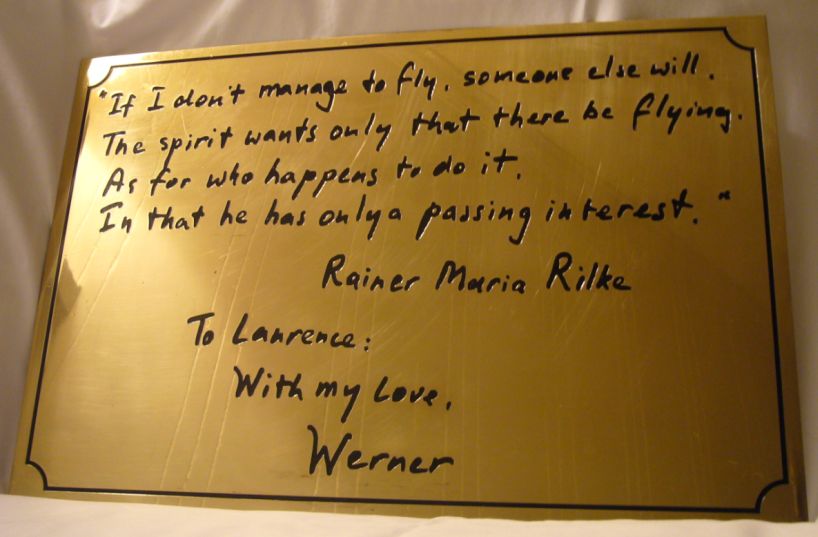 "If I don't manage to fly, someone else will.
The spirit wants only that there be flying.
As for who happens to do it,
In that he has only a passing interest."
Rainer Maria Rilke
To Laurence:
With my Love,
Werner